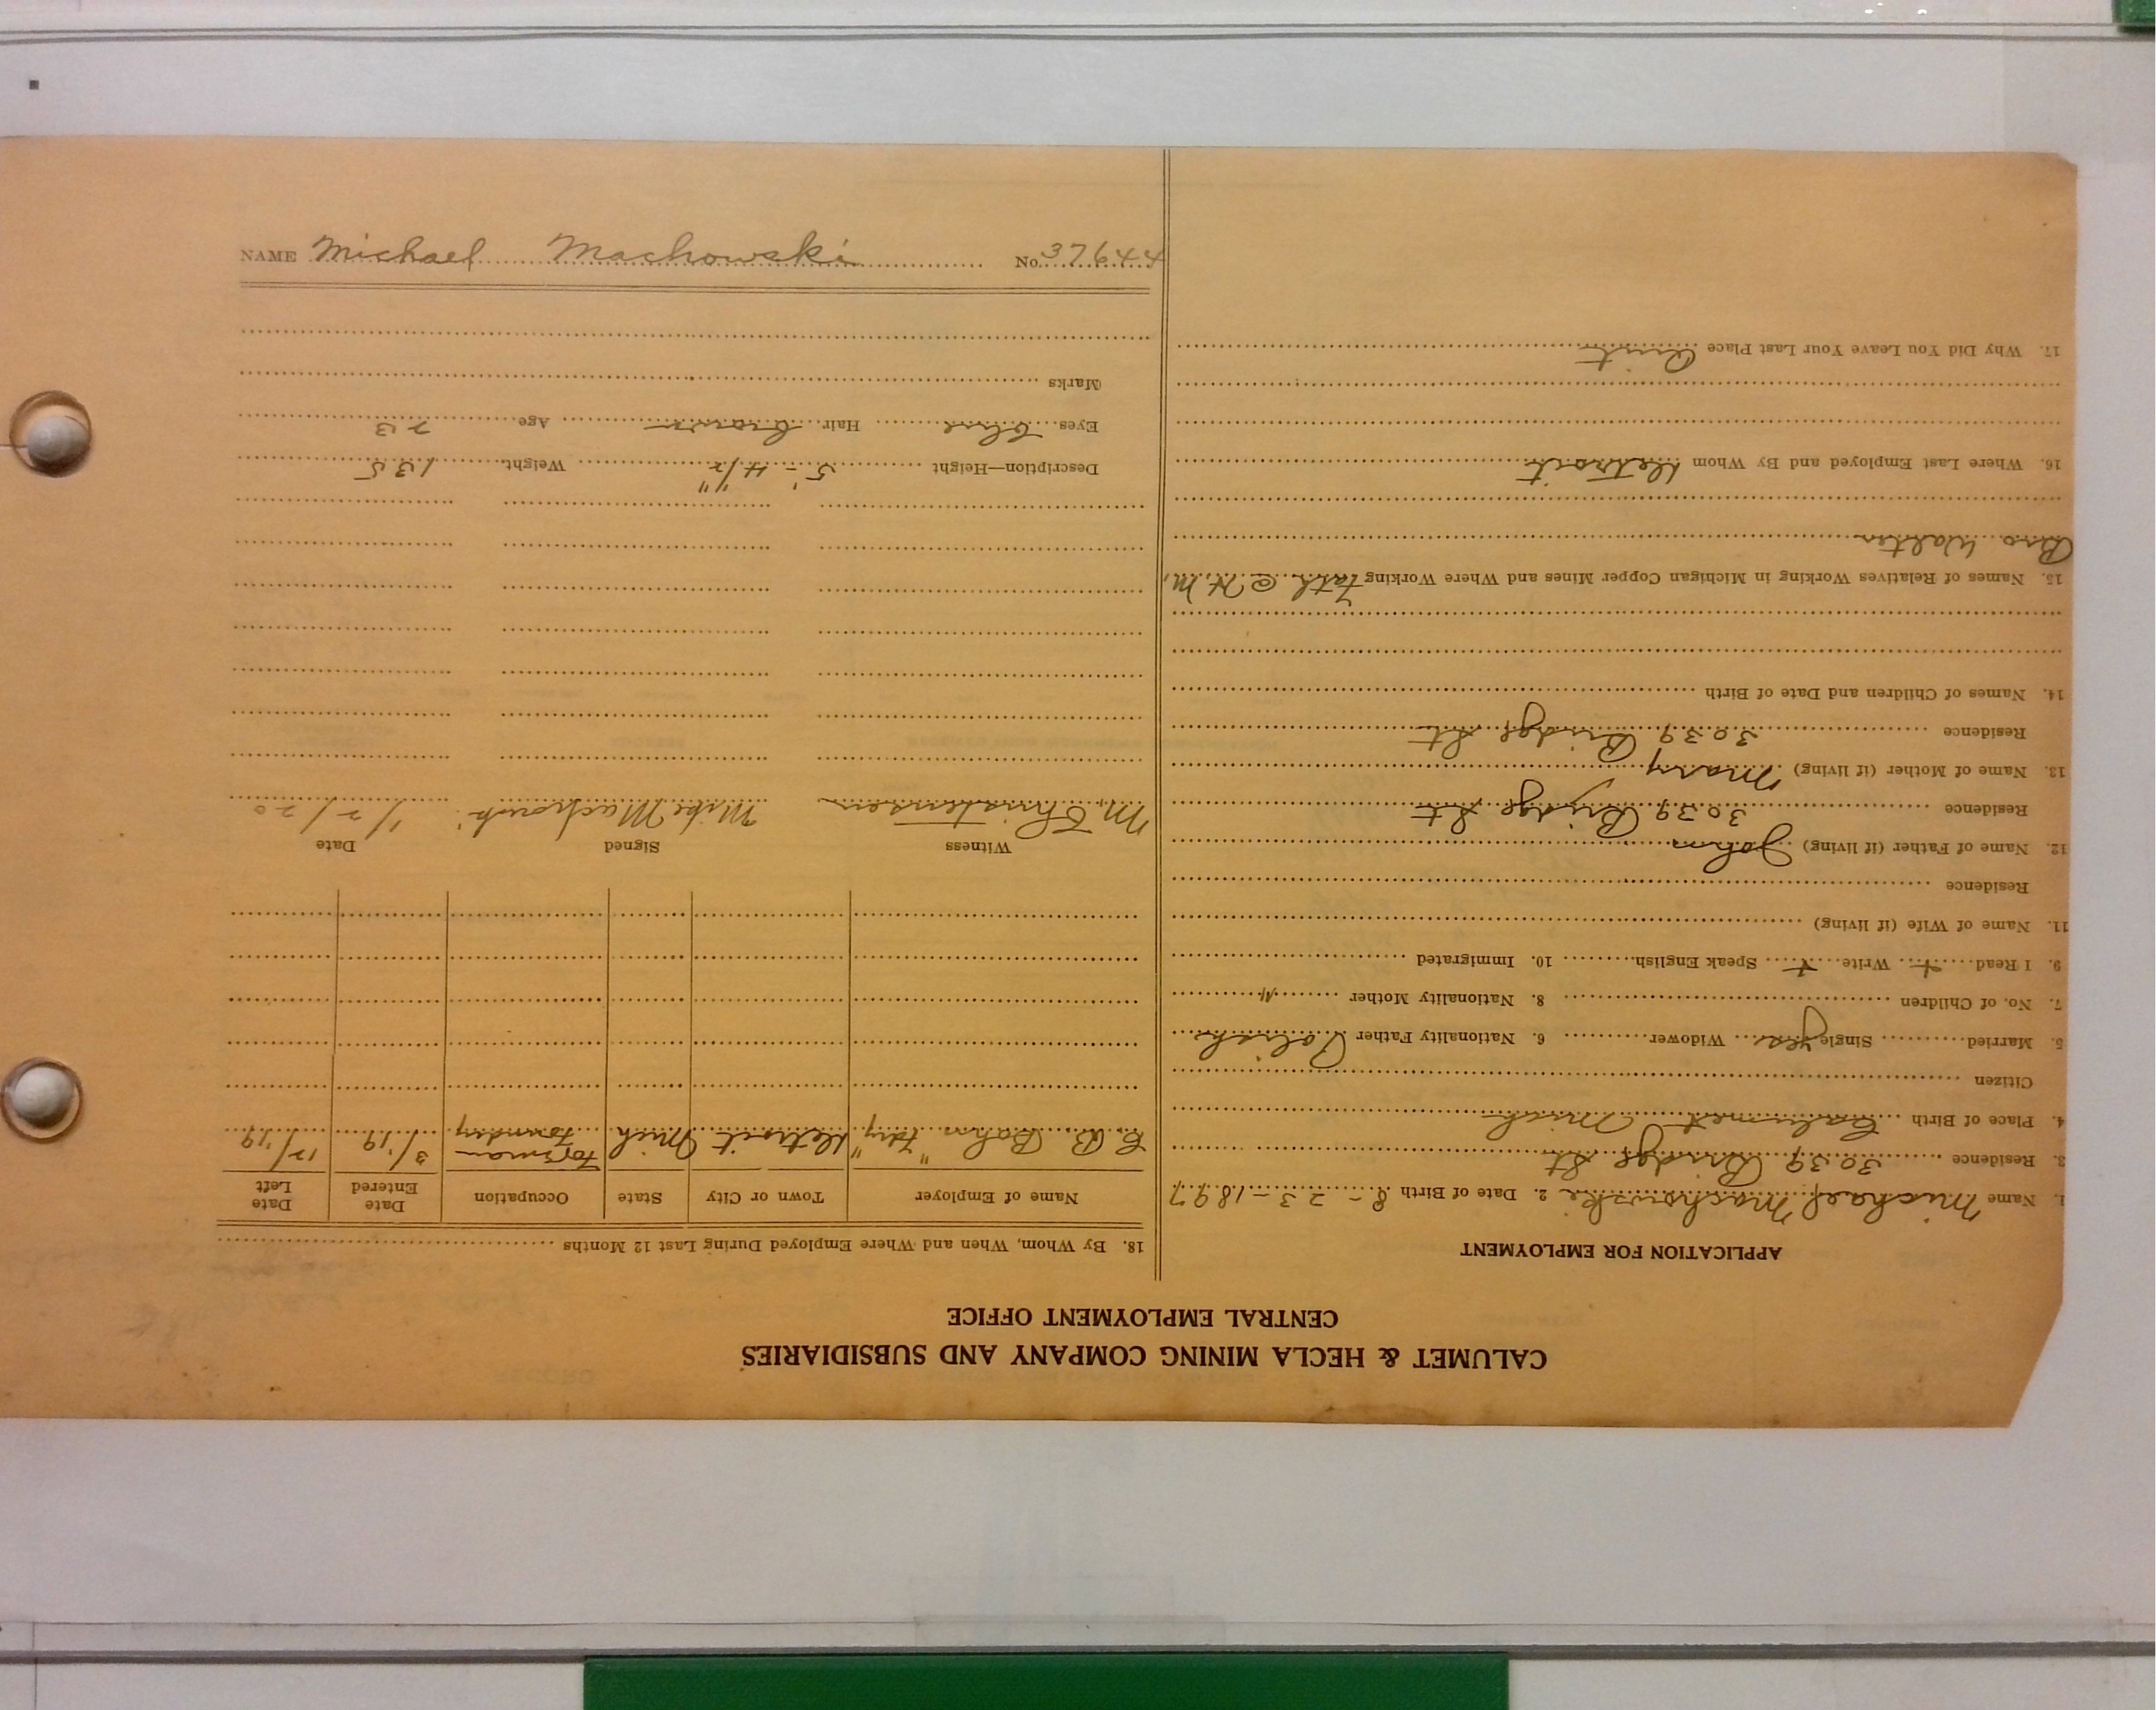 NAME Michael Machowski No. 37644
CALUMET & HECLA MINING COMPANY AND SUBSIDIARIES
CENTRAL EMPLOYMENT OFFICE
APPLICATION FOR EMPLOYMENT
1. Name Michael Machowski 2. Date of Birth 8-23-1897
3. Residence 3039 Bridge St
4. Place of Birth Calumet Mich
Citizen
5. Married Single yes Widower 6. Nationality Father Polish
7. No. of Children 8. Nationality Mother "
9. I Read + Write + Speak English 10. Immigrated
11. Name of Wife (if living)
Residence
12. Name of Father (if living) John
Residence 3039 Bridge St
13. Name of Mother (if living) Mary
Residence 3039 Bridge St
14. Names of Children and Date of Birth
15. Names of Relatives Working in Michigan Copper Mines and Where Working Fath @ H.M.
Bro Walter
16. Where Last Employed and By Whom Detroit
17. Why Did You Leave Your Last Place Quit
18. By Whom, When and Where Employed During Last 12 Months
Name of Employer Town or City State Occupation Date Entered Date Left
C.B. Bohn "Fdry" Detroit Mich Foundry 3/'19 12/'19
Witness Signed Date
M. Christensen Mike Machowski 1/2/20
Description—Height 5'-4 1/2" Weight 135
Eyes blue Hair brown Age 23
Marks